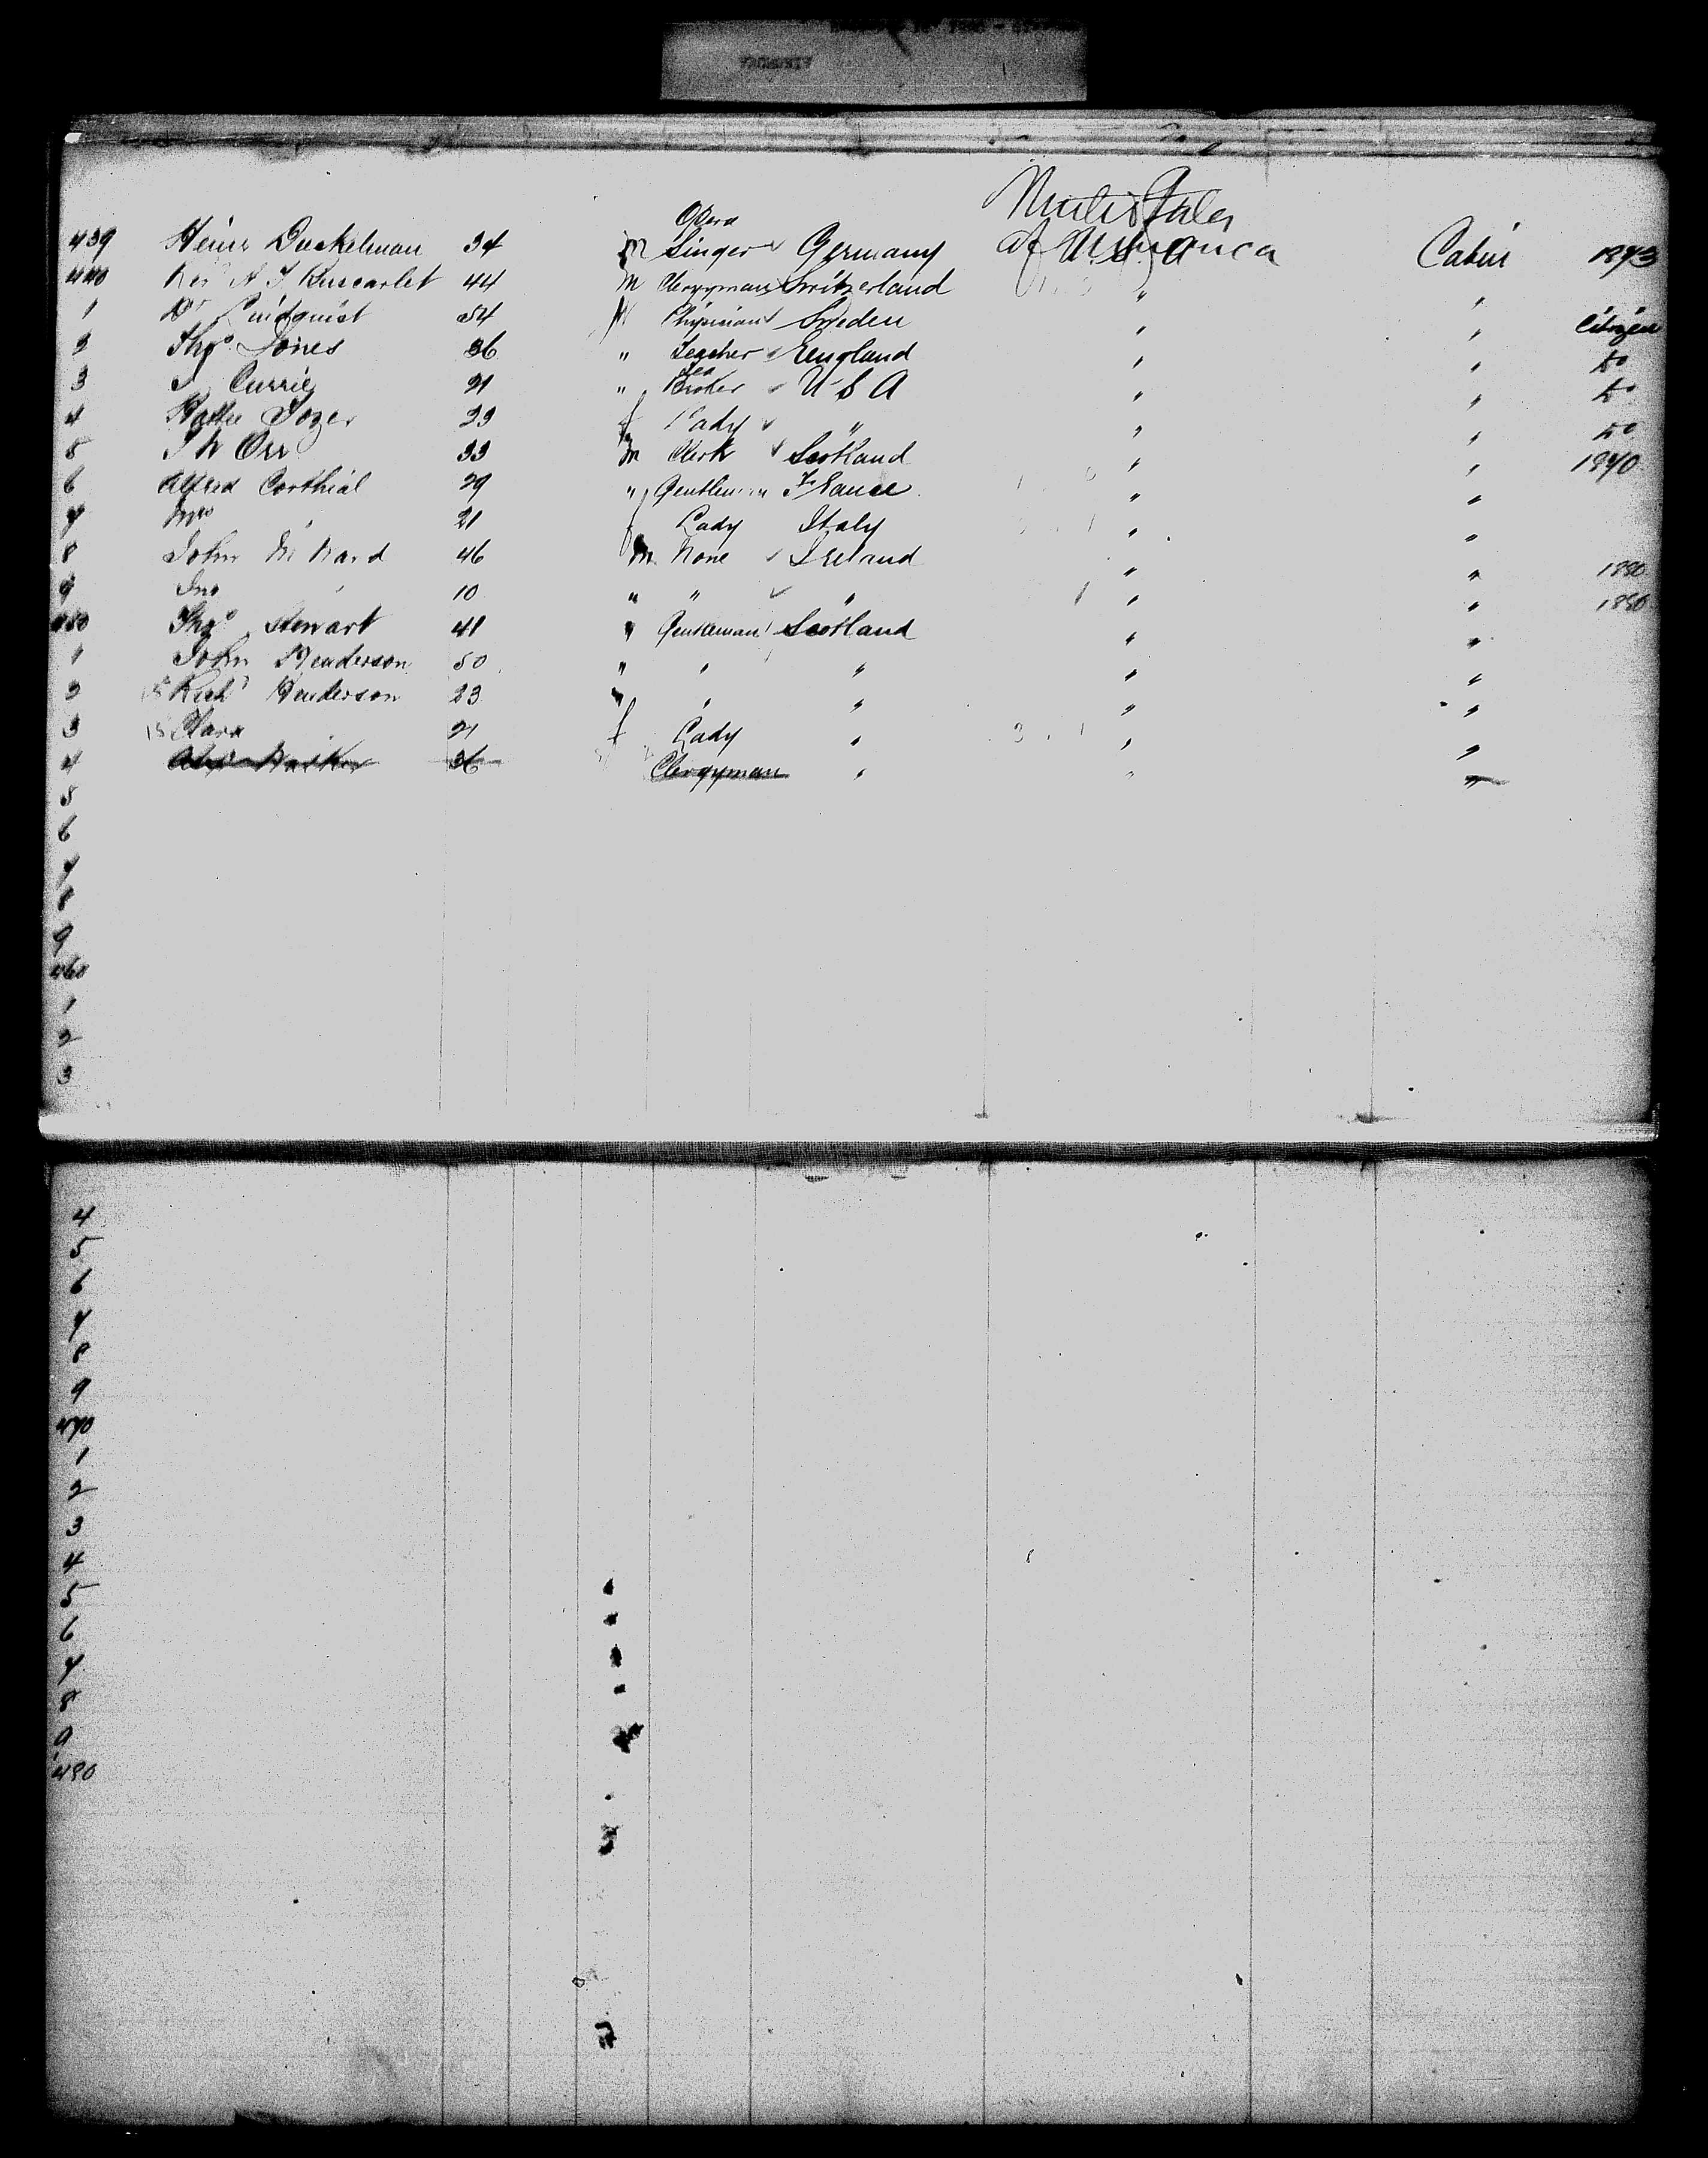 United States
Opera
439 Heinr Dunkelman 34 m Singer Germany of U.S. America Cabin 1873
440 Rev A F Buscarlet 44 m Clergyman Switzerland " " 
1 Dr Lindquist 54 M Physician Sweden " " Citizen
2 Thos Jones 36 " Teacher England " " Do
Tea
3 J Currie 21 " Broker U S A " " Do
4 Hattie Tozer 23 f Lady " " " Do
5 J W Orr 33 m Clerk Scotland " " 1870
6 Alfred Corthial 29 " Gentleman France " "
7 Mrs " 21 f Lady Italy " "
8 John M Ward 46 m None Ireland " " 1880
9 Jno " 10 " " " " " 1880
450 Thos Stewart 41 " Gentleman Scotland " "
1 John Henderson 50 " " " " "
2 Richd Henderson 23 " " " " "
3 Clara 21 f Lady " " "
4 36 Clergyman " " "
5
6
7
8
9
460
1
2
3
4
5
6
7
8
9
470
1
2
3
4
5
6
7
8
9
480